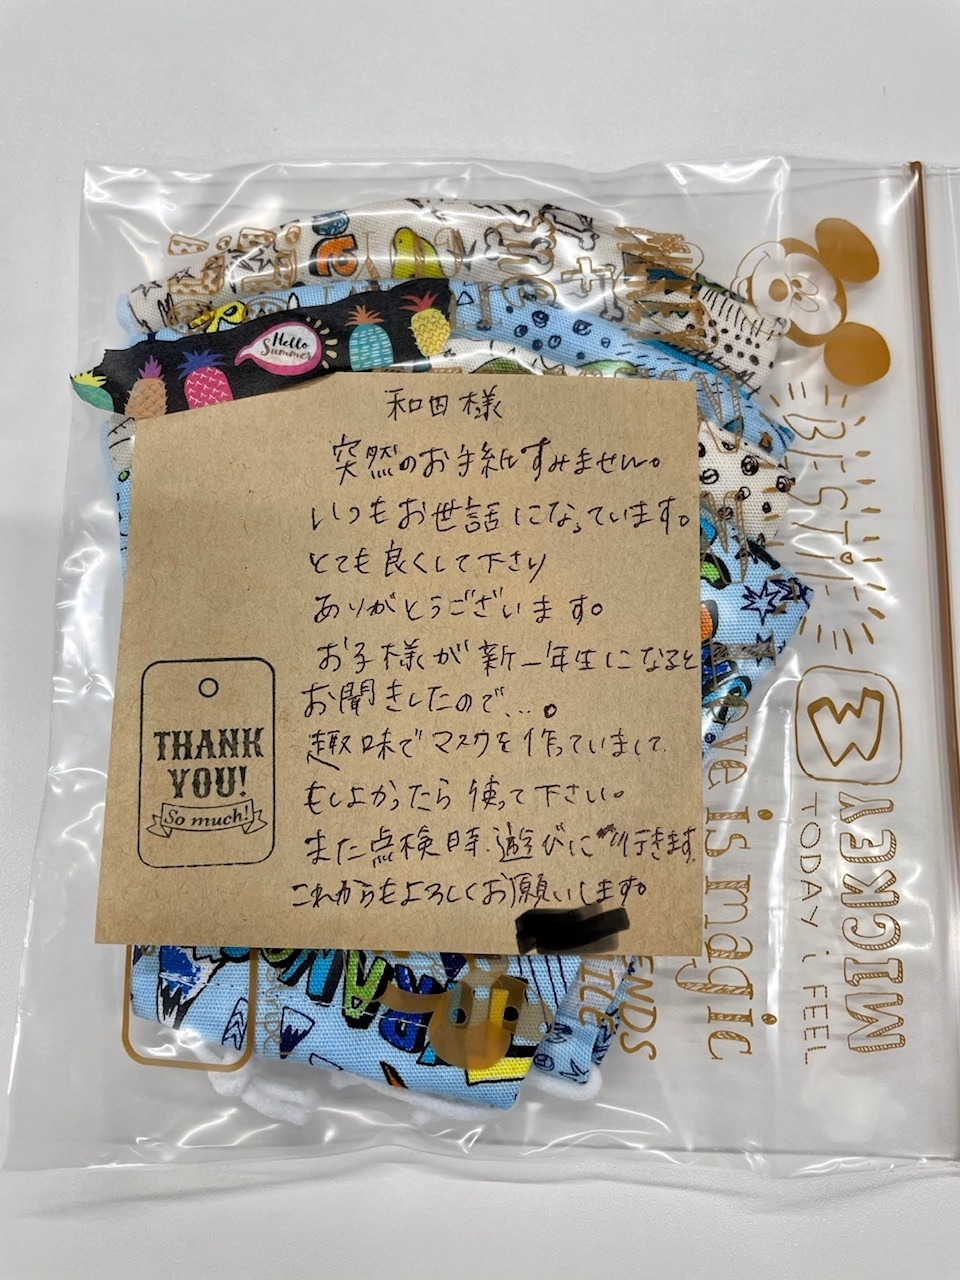 Hello
Summer
和田様
突然のお手紙すみません。
いつもお世話になっています。
とても良くして下さり
ありがとうございます。
お子様が新一年生になると
お聞きしたので、…。
趣味でマスクを作っていまして
もしよかったら使って下さい。
また点検時、遊びに行きます。
これからもよろしくお願いします。
THANK
YOU!
So much!
BEST!
Love is magic
MICKEY
TODAY i FEEL